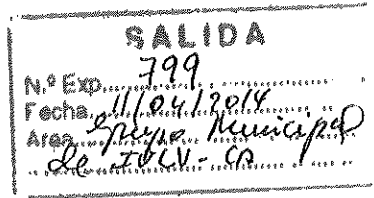 SALIDA
N.º Exp. 799
Fecha 11/04/2014
Area Grupo Municipal
de IULV-CA